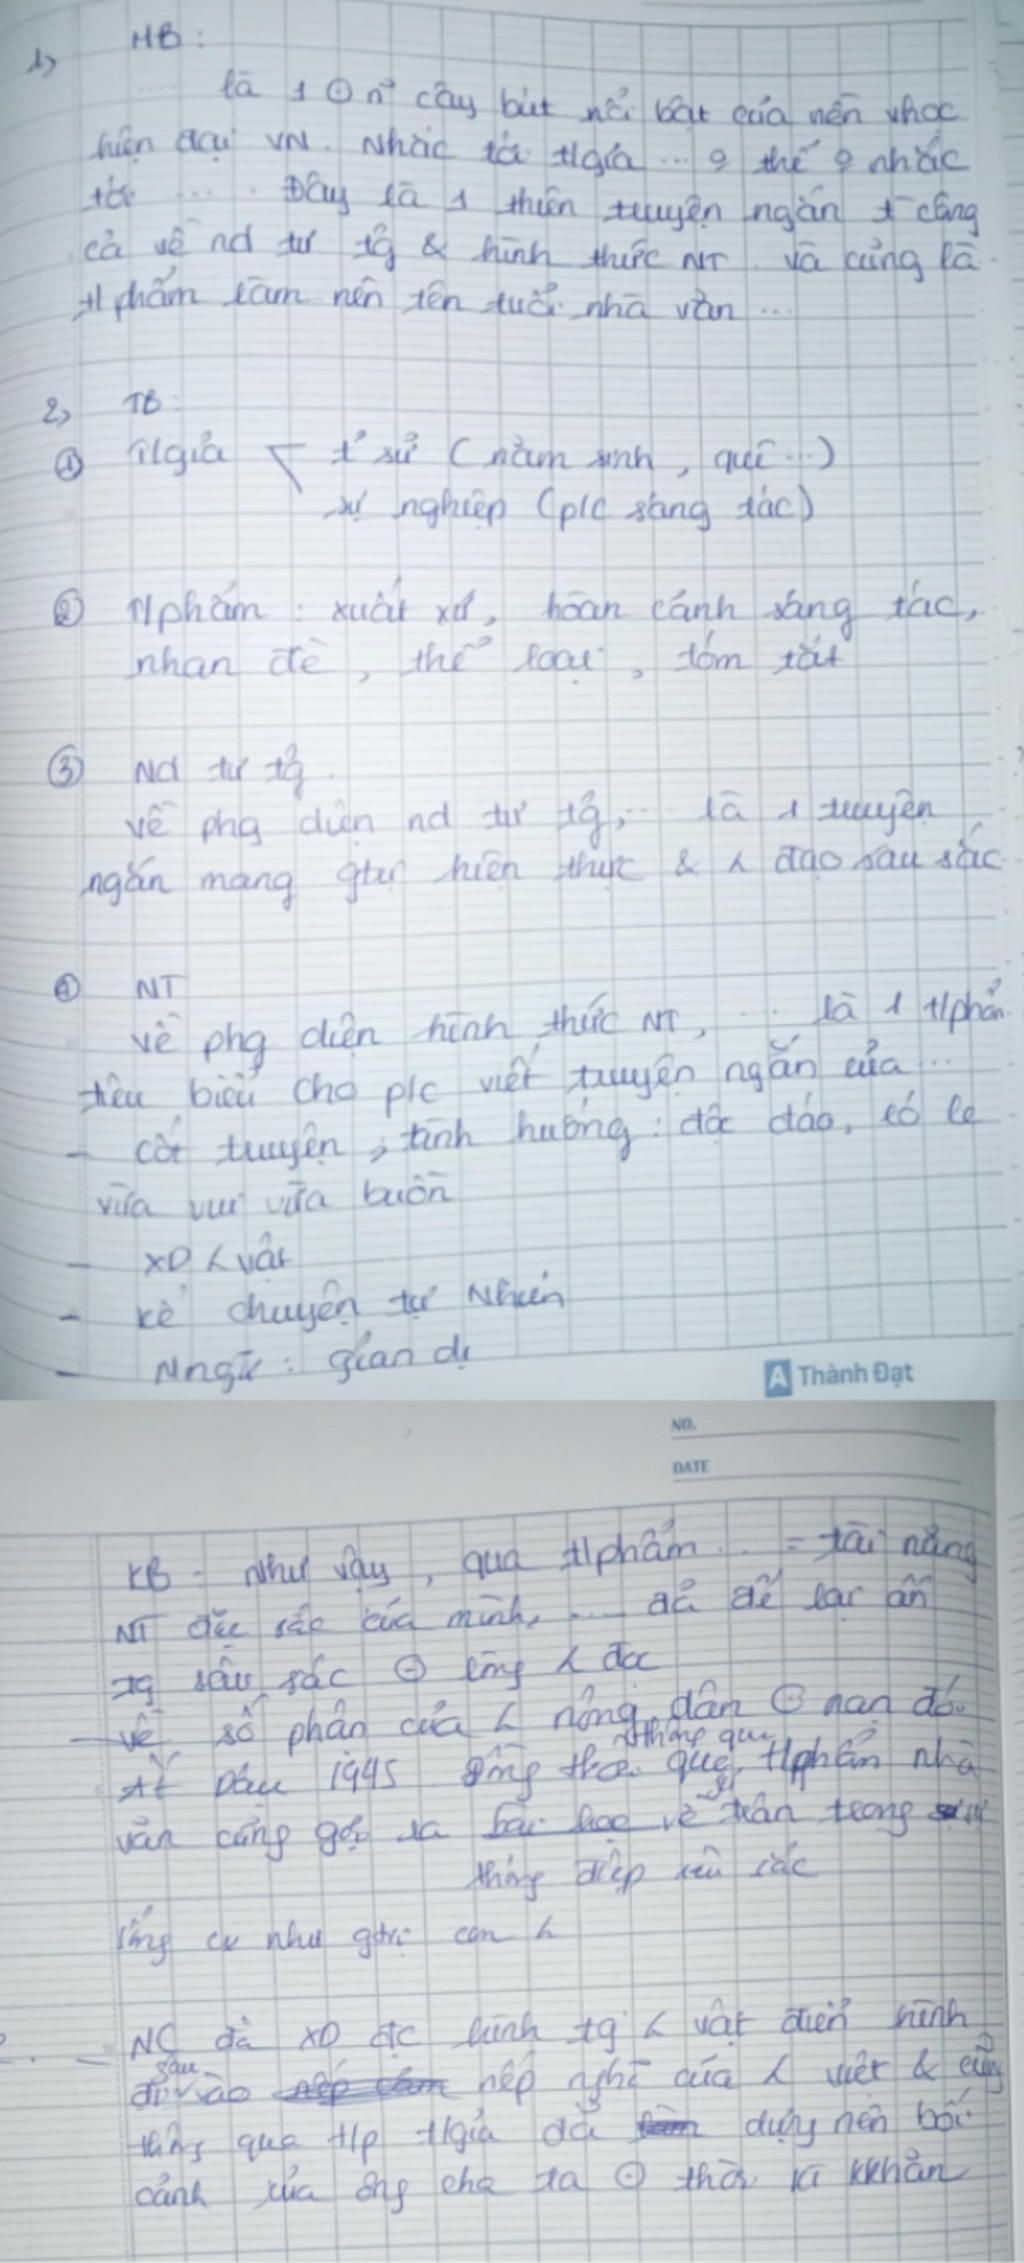 1) MB:
... là 1 ⊙ n~ cây bút nổi bật của nền vhọc
hiện đại VN. Nhắc tới t/giả ... o thể o nhắc
tới .... Đây là 1 thiên truyện ngắn t công
cả về nd tư tg & hình thức NT. và cũng là
t/phẩm làm nên tên tuổi nhà văn ...
2) TB:
① T/giả t' sử (năm sinh, quê...)
sự nghiệp (p/c sáng tác)
② T/phẩm: xuất xứ, hoàn cảnh sáng tác,
nhan đề, thể loại, tóm tắt
③ Nd tư tg.
về phg diện nd tư tg, ... là 1 truyện
ngắn mang gtrị hiện thực & < đạo sâu sắc
④ NT
Về phg diện hình thức NT, ... là 1 t/phẩm
tiêu biểu cho p/c viết truyện ngắn của ...
- cốt truyện, tình huống: độc đáo, éo le
vừa vui vừa buồn
- XD < vật
- kể chuyện tự nhiên
- Nngữ: giản dị
A Thành Đạt
NO.
DATE
KB: Như vậy, qua t/phẩm ... = tài năng
NT đặc sắc của mình, ... đã để lại ấn
tg sâu sắc ⊙ lòng < đọc
- về số phận của < nông dân ⊙ nạn đói
thông qua
Ất Dậu 1945 đồng thời qua t/phẩm nhà
văn cũng gợi ra bài học về sự trân trọng sự
thông điệp sâu sắc
sống cx như gtrị con <
- NC đã XD đc hình tg < vật điển hình
sâu
đi vào nếp cảm nếp nghĩ của < việt & cũng
thông qua t/p t/giả đã làm dựng nên bối
cảnh của ông cha ta ⊙ thời kì kkhăn